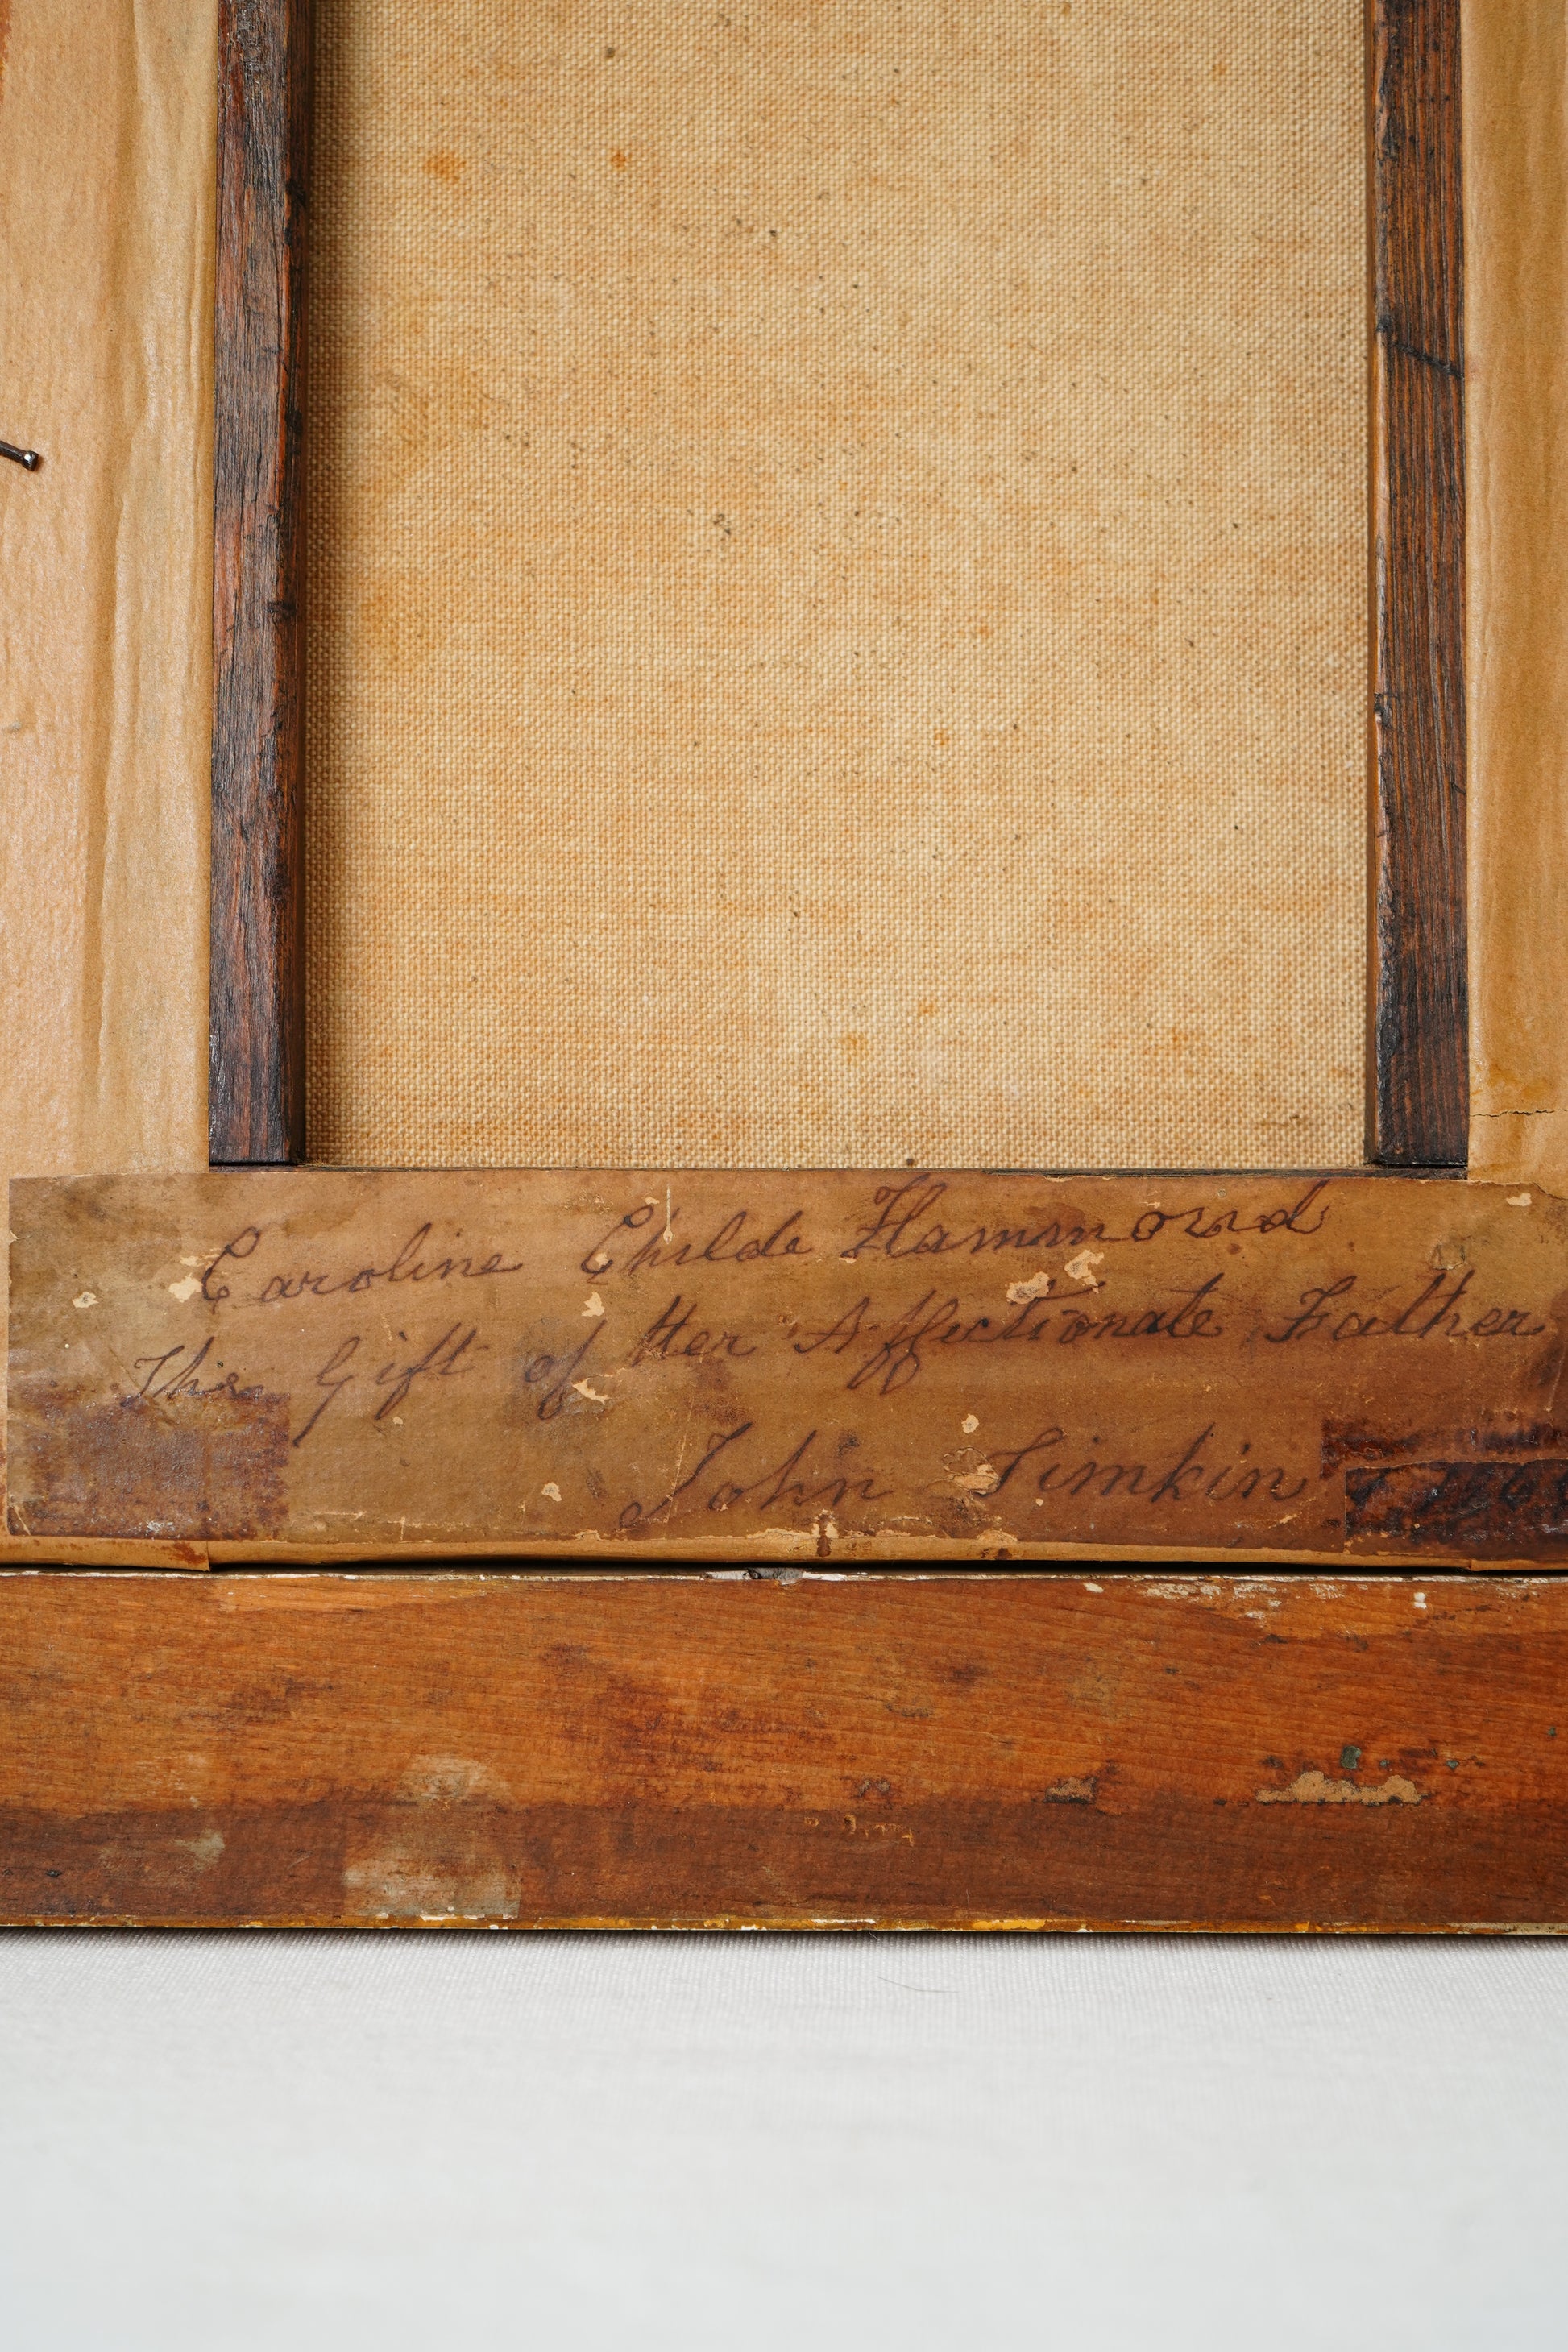 Caroline Childe Hammond
The Gift of Her Affectionate Father
John Timkin